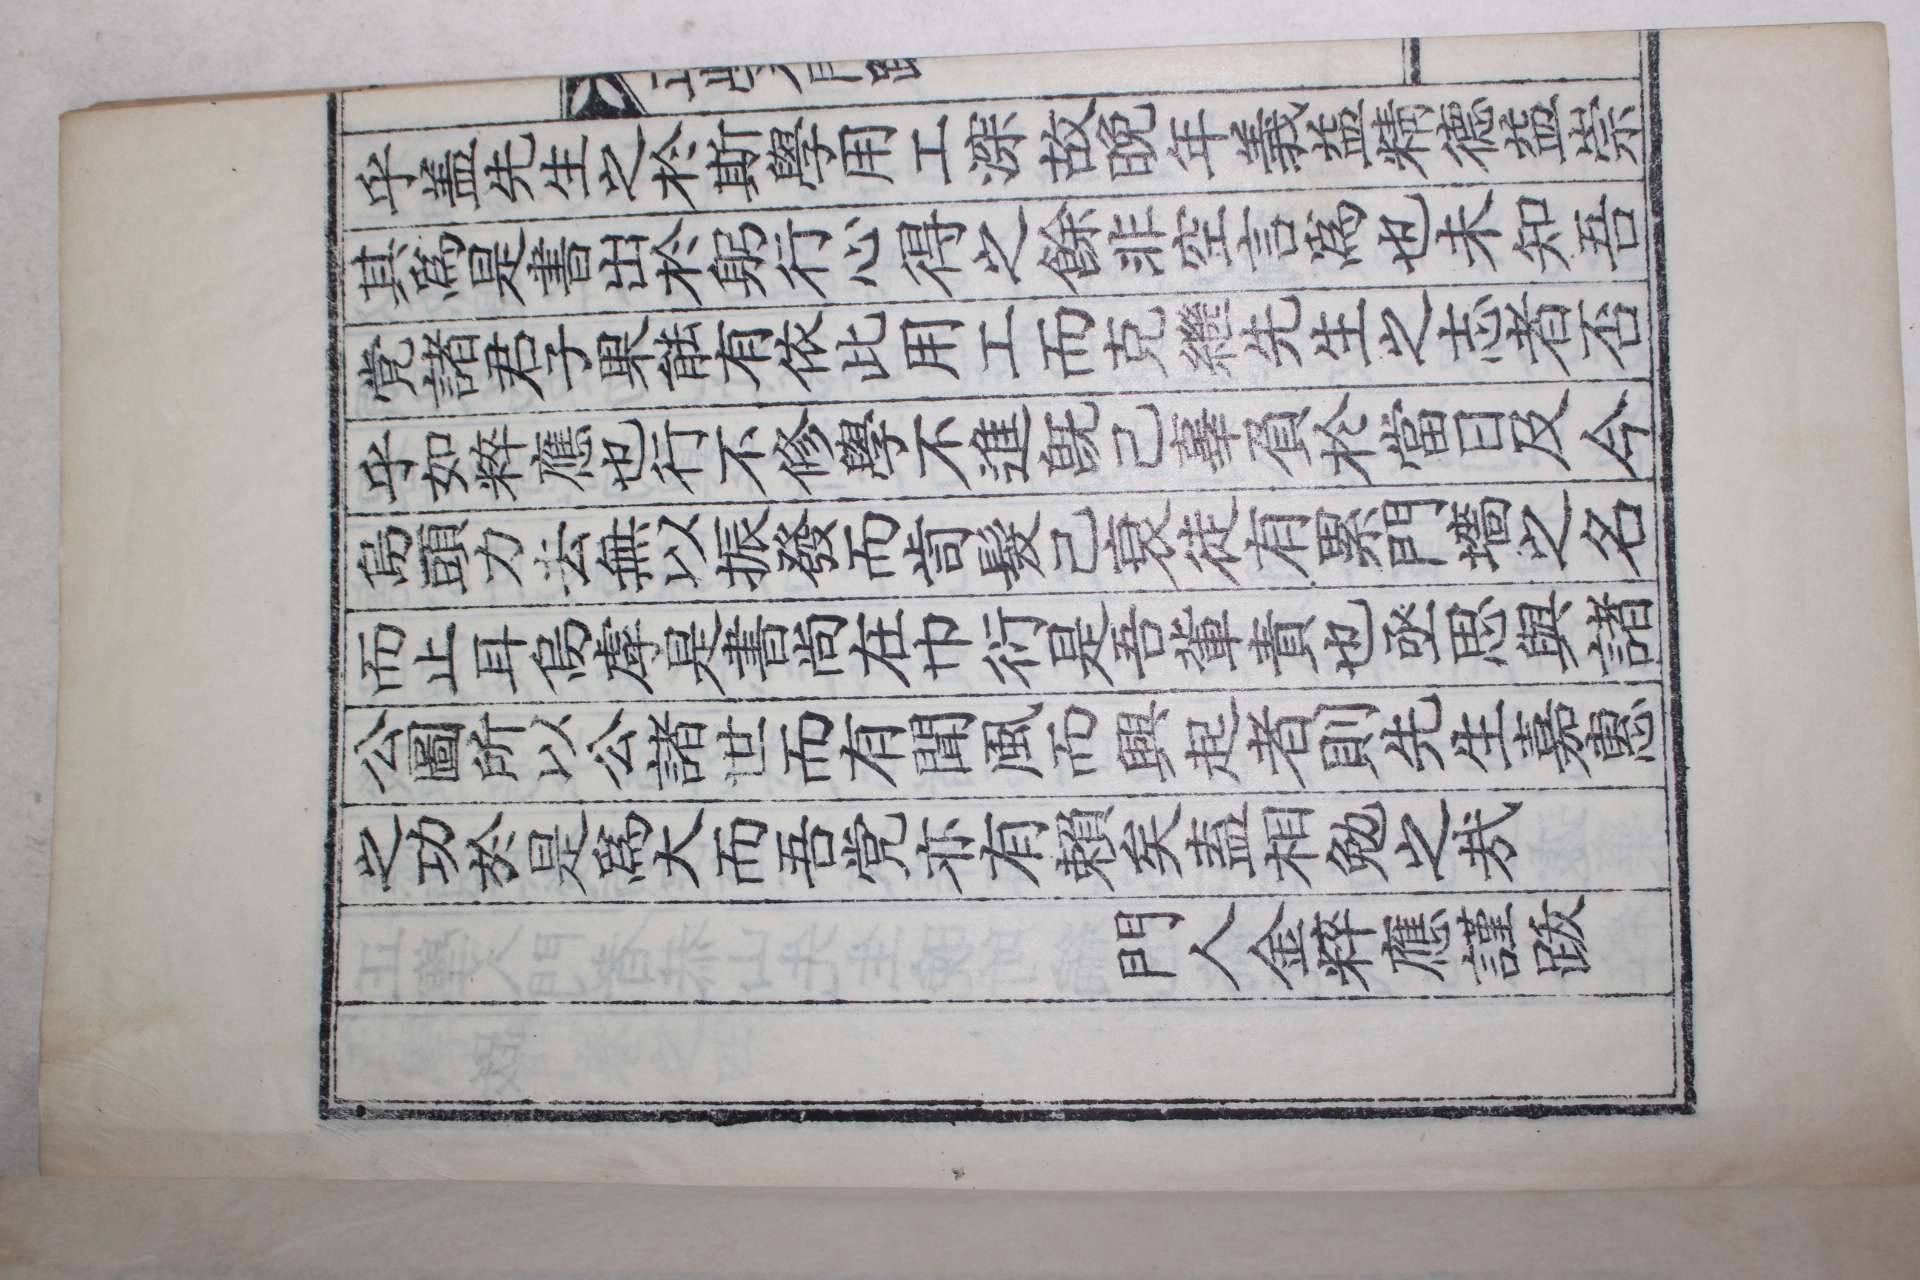 乎盖先生之於斯學用工深故晩年義益精德益崇
其爲是書出於躬行心得之餘非空言爲也未知吾
党諸君子果能有依此用工而克繼先生之志者否
乎如粹應也行不修學不進既已辜負於當日及今
烏頭力去無以振發而髮已衰徒有累門墻之名
而止耳烏虖是書尙在巾衍是吾輩責也亟思與諸
公圖所以公諸世而有聞風而興起者則先生嘉惠
之功於是爲大而吾党亦有賴矣盍相勉之哉
門人金粹應謹跋